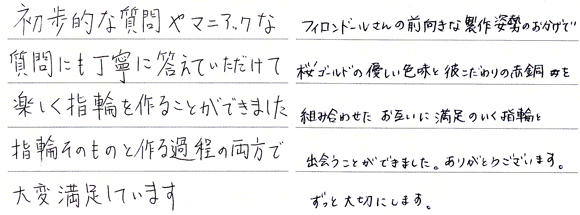 初歩的な質問やマニアックな
質問にも丁寧に答えていただけて
楽しく指輪を作ることができました
指輪そのものと作る過程の両方で
大変満足しています
フィロンドールさんの前向きな製作姿勢のおかげで
桜ゴールドの優しい色味と彼こだわりの赤銅色を
組み合わせた お互いに満足のいく指輪と
出会うことができました。ありがとうございます。
ずっと大切にします。